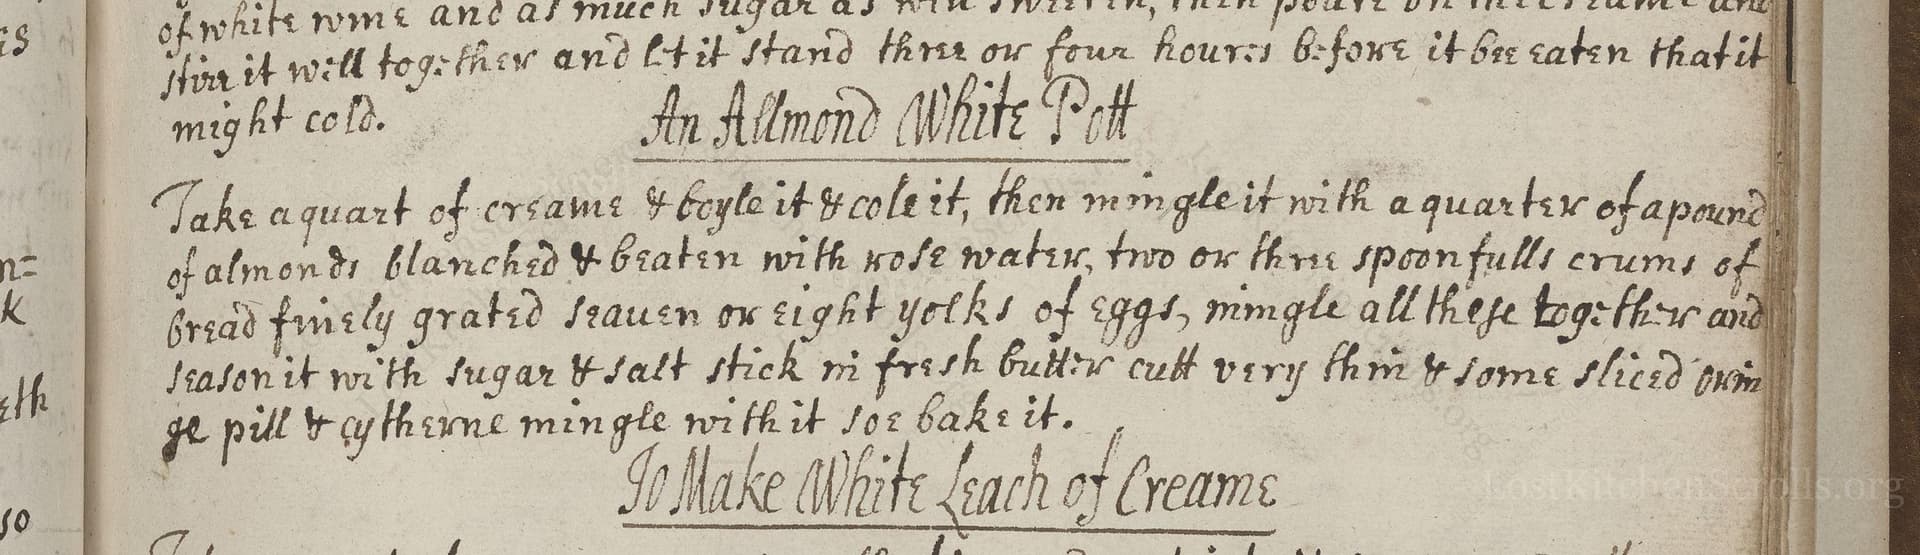 of white wine and as much sugar as will sweeten, then poure on the creame and
stirr it well together and let it stand three or four houres before it bee eaten that it
might cold.
An Allmond White Pott
Take a quart of creame & boyle it & cole it, then mingle it with a quarter of a pound
of almonds blanched & beaten with rose water, two or three spoonfulls crums of
bread finely grated seauen or eight yolks of eggs, mingle all these together and
season it with sugar & salt stick in fresh butter cutt very thin & some sliced orin
ge pill & cytherne mingle with it soe bake it.
To Make White Leach of Creame
es
n=
k
eth
so
LostKitchenScrolls.org